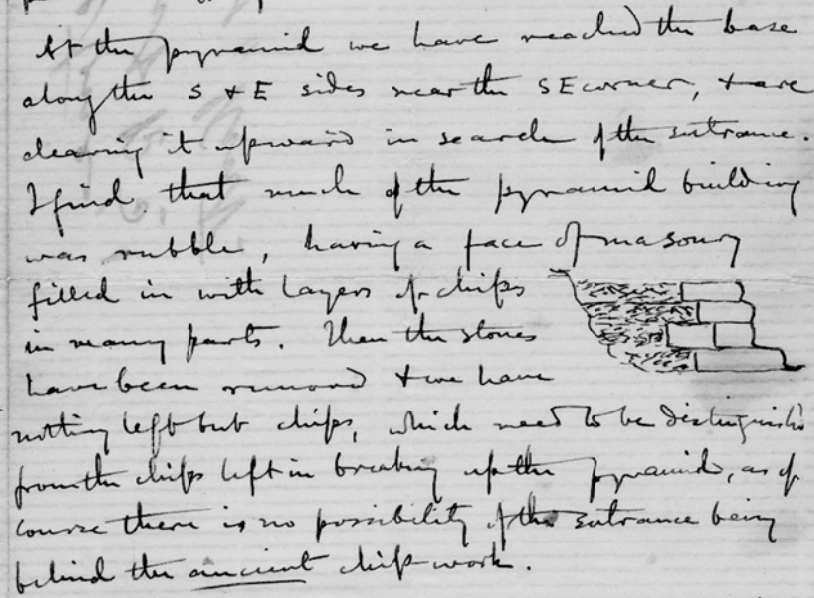 At the pyramid we have reached the base
along the S & E sides near the SE corner, & are
clearing it upward in search of the entrance.
I find that much of the pyramid building
was rubble, having a face of masonry
filled in with layers of chips
in many parts. Then the stones
have been removed & we have
nothing left but chips, which need to be distinguish'd
from the chips left in breaking up the pyramid, as of
course there is no possibility of the entrance being
behind the ancient chip-work.